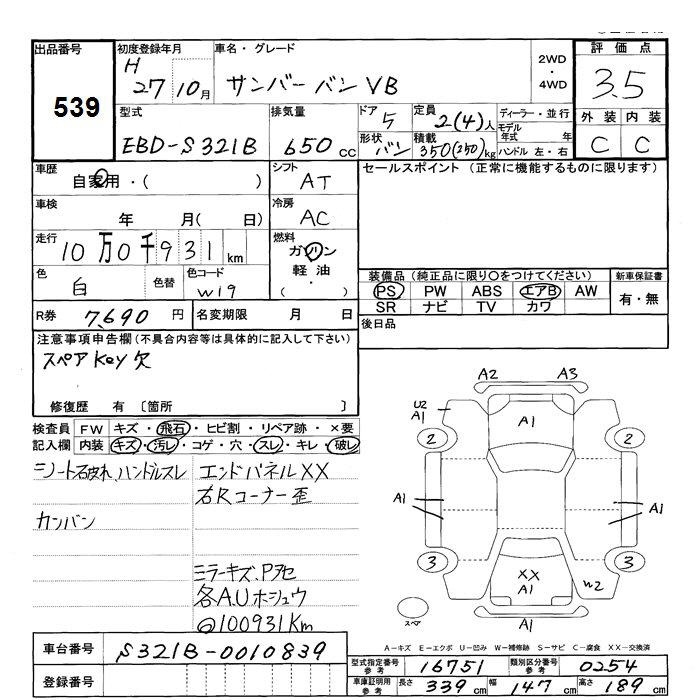 出品番号
539
初度登録年月
H
27 10月
車名・グレード
サンバーバン VB
2WD
・
4WD
評価点
3.5
外装 内装
C C
型式
EBD-S321B
排気量
650 cc
ドア
5
形状
バン
定員
2(4)人
積載
350(250)kg
ディーラー・並行
モデル年式 年
ハンドル 左・右
車歴
自家用・( )
シフト
AT
セールスポイント (正常に機能するものに限ります)
車検
年 月( 日)
冷房
AC
走行
10万0千931km
燃料
ガソリン
・
軽油
・
( )
色
白
色替
色コード
W19
装備品 (純正品に限り〇をつけてください)
PS PW ABS エアB AW
SR ナビ TV カワ
新車保証書
有・無
R券 7,690 円
名変期限 月 日
後日品
注意事項申告欄 (不具合内容等は具体的に記入して下さい)
スペアKey欠
修復歴 有 〔箇所 〕
検査員記入欄
FW キズ・飛石・ヒビ割・リペア跡・×要
内装 キズ・汚レ・コゲ・穴・スレ・キレ・破レ
シート破れ、ハンドルスレ
カンバン
エンドパネルXX
右Rコーナー歪
ミラーキズ、Pアセ
各A.Uホシュウ
@100931Km
A2 A3
U2
A1
A1
2 2
A1
A1
3 3
XX
A1
W2
A1
スペア
A-キズ E-エクボ U-凹み W-補修跡 S-サビ C-腐食 XX-交換済
車台番号
S321B-0010839
登録番号
型式指定番号
参考
16751
類別区分番号
参考
0254
車庫証明用
参考
長さ 339 cm 幅 147 cm 高さ 189 cm